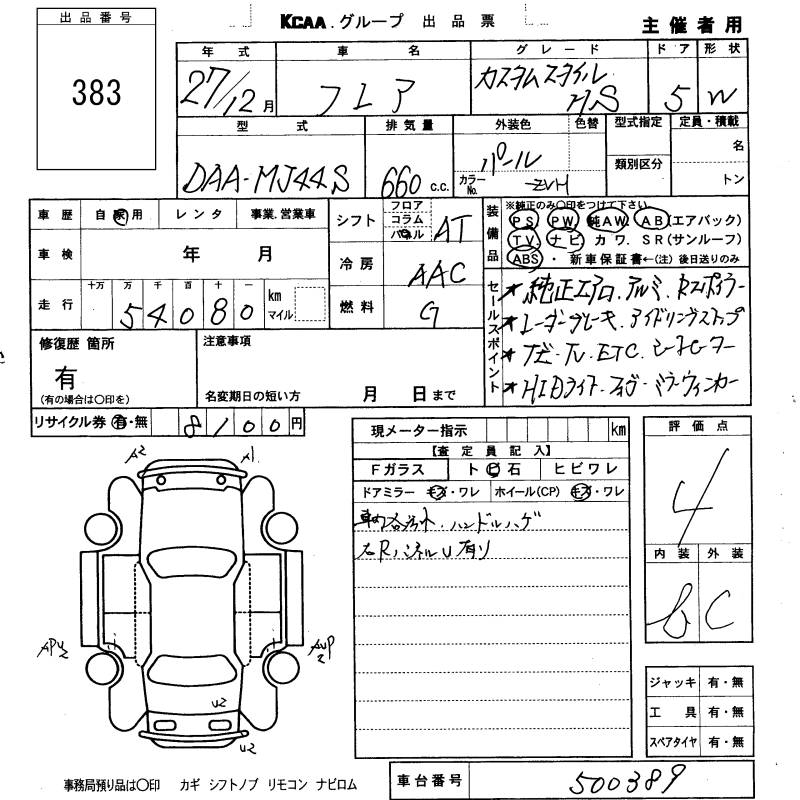 出品番号
383
KCAA.グループ 出品票
主催者用
年式 車名 グレード ドア 形状
27/12月 フレア カスタムスタイル HS 5 W
型式 排気量 外装色 色替 型式指定 定員・積載
DAA-MJ44S 660 c.c. パール 名
カラーNo. ZVH 類別区分 トン
車歴 自家用 レンタ 事業.営業車
車検 年 月
走行 十万 万 千 百 十 一 km マイル
54080
シフト フロア コラム パネル AT
冷房 AAC
燃料 G
装備品
※純正のみ○印をつけて下さい
PS PW 純AW. AB(エアバック)
TV. ナビ カワ. SR(サンルーフ)
ABS ・ 新車保証書←(注) 後日送りのみ
セールスポイント
★純正エアロ.アルミ.Rスポイラー
★レーダーブレーキ.アイドリングストップ
★ナビ・TV.ETC.シートヒーター
★HIDライト・フォグ・ミラーウィンカー
修復歴 箇所
有
(有の場合は○印を)
注意事項
名変期日の短い方 月 日まで
リサイクル券 有・無 8100円
現メーター指示 km
【査定員記入】
Fガラス ト ビ 石 ヒビワレ
ドアミラー キズ・ワレ ホイール(CP) キズ・ワレ
ハンドルハゲ
右RパネルU有り
評価点
4
内装 外装
B C
A2 A1
APU2 AUP2
U2
U2
ジャッキ 有・無
工具 有・無
スペアタイヤ 有・無
事務局預り品は○印 カギ シフトノブ リモコン ナビロム
車台番号 500389